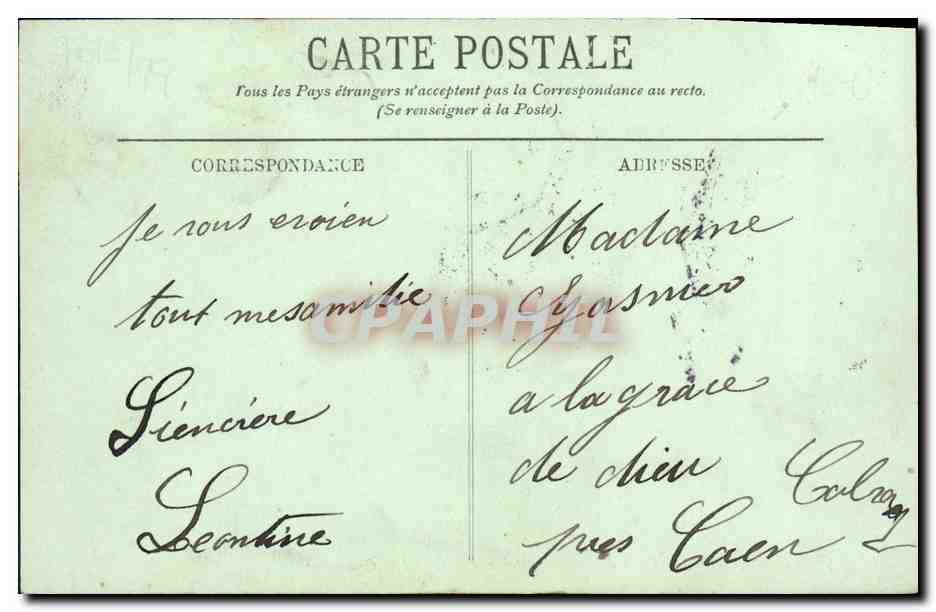 CARTE POSTALE
Tous les Pays étrangers n'acceptent pas la Correspondance au recto.
(Se renseigner à la Poste).
CORRESPONDANCE
ADRESSE
Je vous envoien
tout mesamitie
Siencière
Leontine
Madame
Gasnier
a lagrace
de dieu
pres Caen
Calvados
CPAPHIL